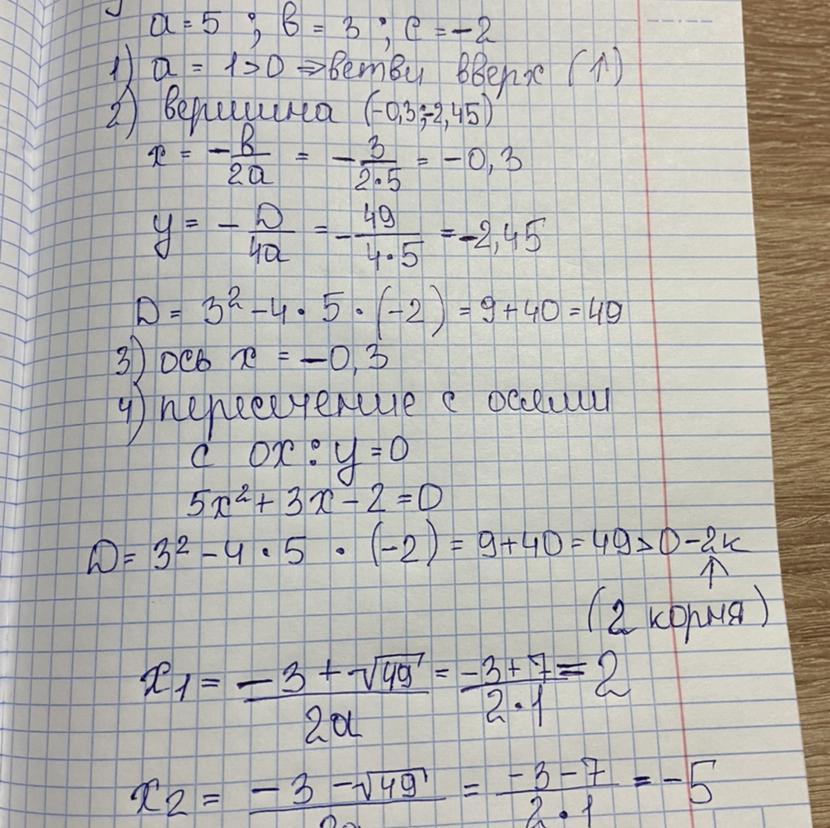 a = 5 ; в = 3 ; c = -2
1) a = 1 > 0 ⇒ ветви вверх (↑)
2) вершина (-0,3; -2,45)
x = -в/2a = -3/2·5 = -0,3
y = -D/4a = -49/4·5 = -2,45
D = 3² - 4 · 5 · (-2) = 9 + 40 = 49
3) ось x = -0,3
4) пересечение с осями
с ox : y = 0
5x² + 3x - 2 = 0
D = 3² - 4 · 5 · (-2) = 9 + 40 = 49 > 0 - 2к
↑
(2 корня)
x1 = -3 + √49/2a = -3 + 7/2·1 = 2
x2 = -3 - √49/2a = -3 - 7/2·1 = -5